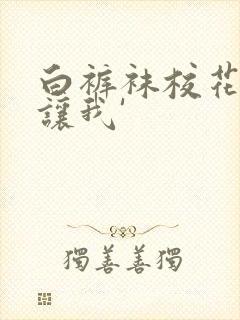 白裤袜校花
讓我'
獨善善獨